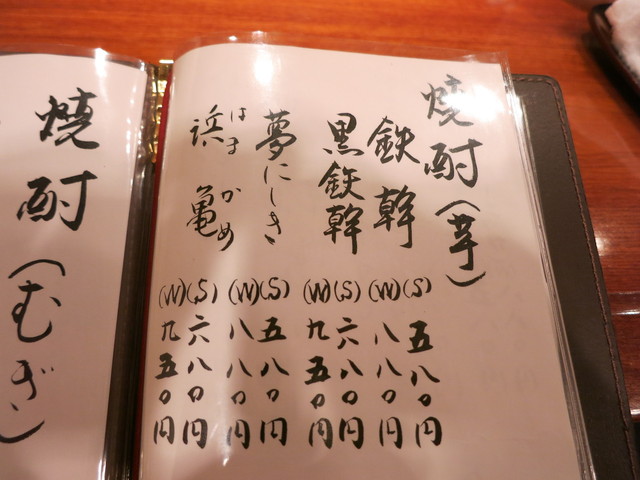 焼酎(芋)
鉄幹
(S)五八〇円
(W)八八〇円
黒鉄幹
(S)六八〇円
(W)九五〇円
夢にしき
(S)五八〇円
(W)八八〇円
浜亀
はまかめ
(S)六八〇円
(W)九五〇円
焼酎(むぎ)